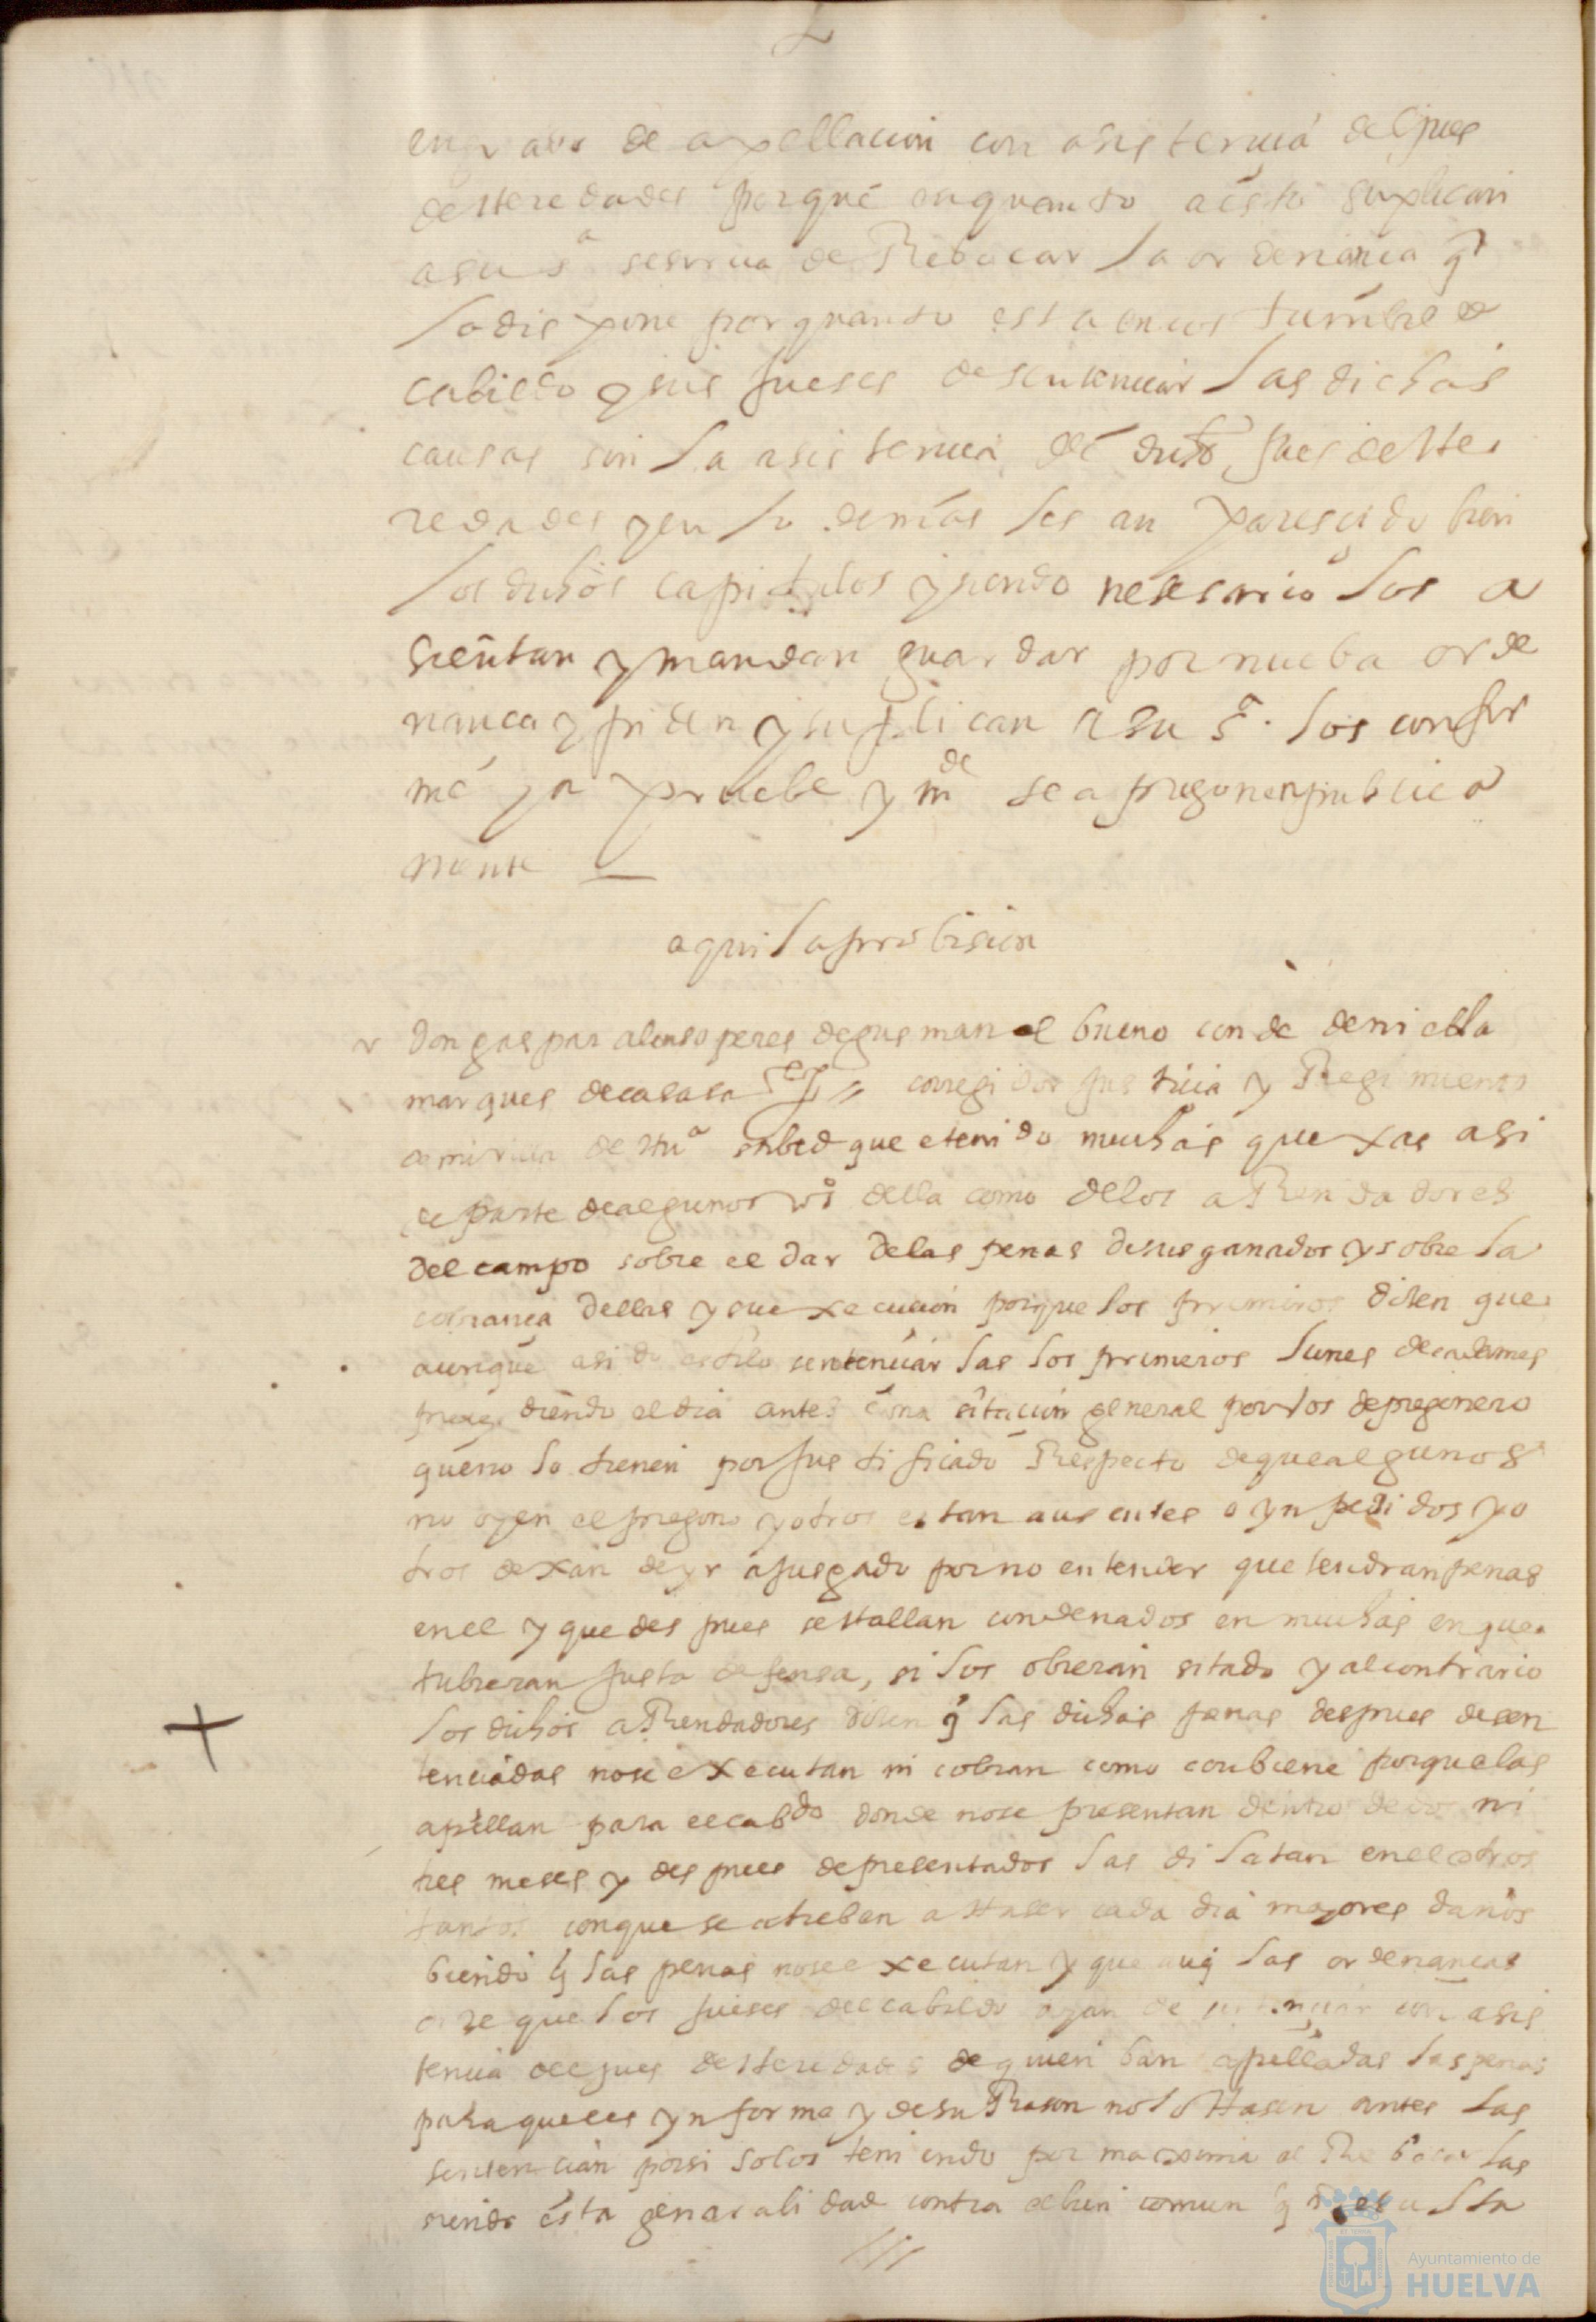 en grado de apellacion con asistencia del jues
de Heredades porque enquanto a esto suplican
a su sª se sirua de Rebocar la ordenança q̃
lo dispone por quanto esta en costumbre el
cabildo y sus jueses de sentenciar las dichas
causas sin la asistencia del dicho jues de He
redades y en lo demas les an parescido bien
los dichos capitulos y siendo nesesario los a
sientan y mandan guardar por nueba orde
nanca y piden y suplican a su sª. los confir
me y a pruebe y mde se a pregonen publica
mente
aqui la probision
Don gaspar alonso peres de gusman el bueno conde de niebla
marques de casasa corregidor justicia y Regimiento
de mi villa de Huª sabed que e tenido muchas quexas asi
de parte de algunos vºs della como de los a Rendadores
del campo sobre el dar de las penas de sus ganados y sobre la
cobranca dellas y su execucion porque los primeros disen que
aunque a sido estilo sentenciar las los primeros lunes de cada mes
presediendo el dia antes una sitacion general por vos de pregonero
que no lo tienen por justificado Respecto de que algunos
no oyen el pregon y otros estan ausentes o ynpedidos y o
tros dexan de yr a jusgado por no entender que tendran penas
en el y que despues se Hallan condenados en muchas en que
tubieran justa defensa, si los obieran sitado y al contrario
los dichos a Rendadores disen q̃ las dichas penas despues de sen
tenciadas no se executan ni cobran como conbiene porque las
apellan para el cabdo donde no se presentan dentro de dos ni
tres meses y despues de presentados las dilatan en el otros
tantos con que se atreben a Haser cada dia mayores daños
biendo q̃ las penas no se executan y que auq̃ las ordenancas
dise que los jueses del cabildo ayan de sentenciar con asis
tencia del jues de Heredades de quien ban apelladas las penas
para que les ynforme y de su Rason no lo Hasen antes las
sentencian por si solos teniendo por maxima el Rebocarlas
siendo esta generalidad contra el bien comun q̃ Resulta
Ayuntamiento de
HUELVA